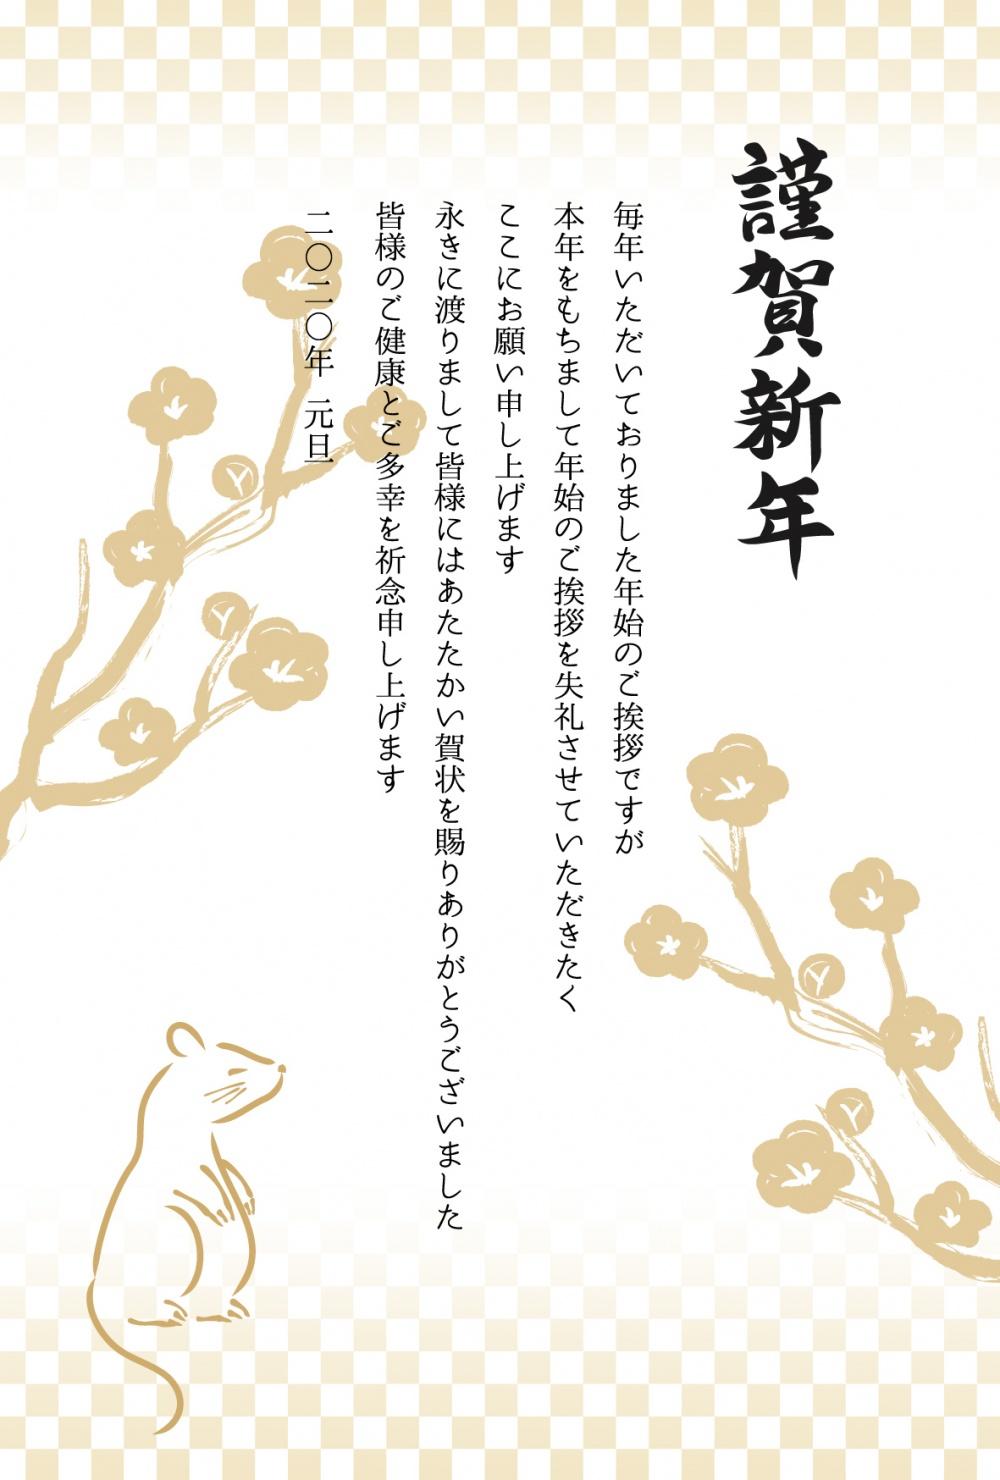 謹賀新年
毎年いただいておりました年始のご挨拶ですが
本年をもちまして年始のご挨拶を失礼させていただきたく
ここにお願い申し上げます
永きに渡りまして皆様にはあたたかい賀状を賜りありがとうございました
皆様のご健康とご多幸を祈念申し上げます
二〇二〇年 元旦